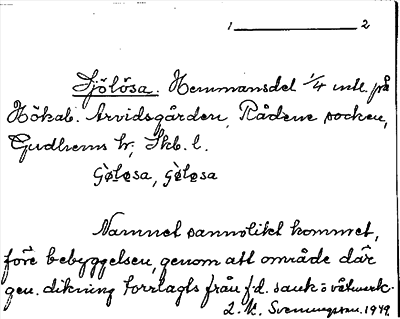 1 2
Sjölösa. Hemmansdel 1/4 mtl. på
Hökab. Arvidsgården, Rådene socken,
Gudhems hr, Skb. l.
Namnet sannolikt kommet,
före bebyggelsen, genom att område där
gen. dikning torrlagts från f.d. sank= våtmark.
1949